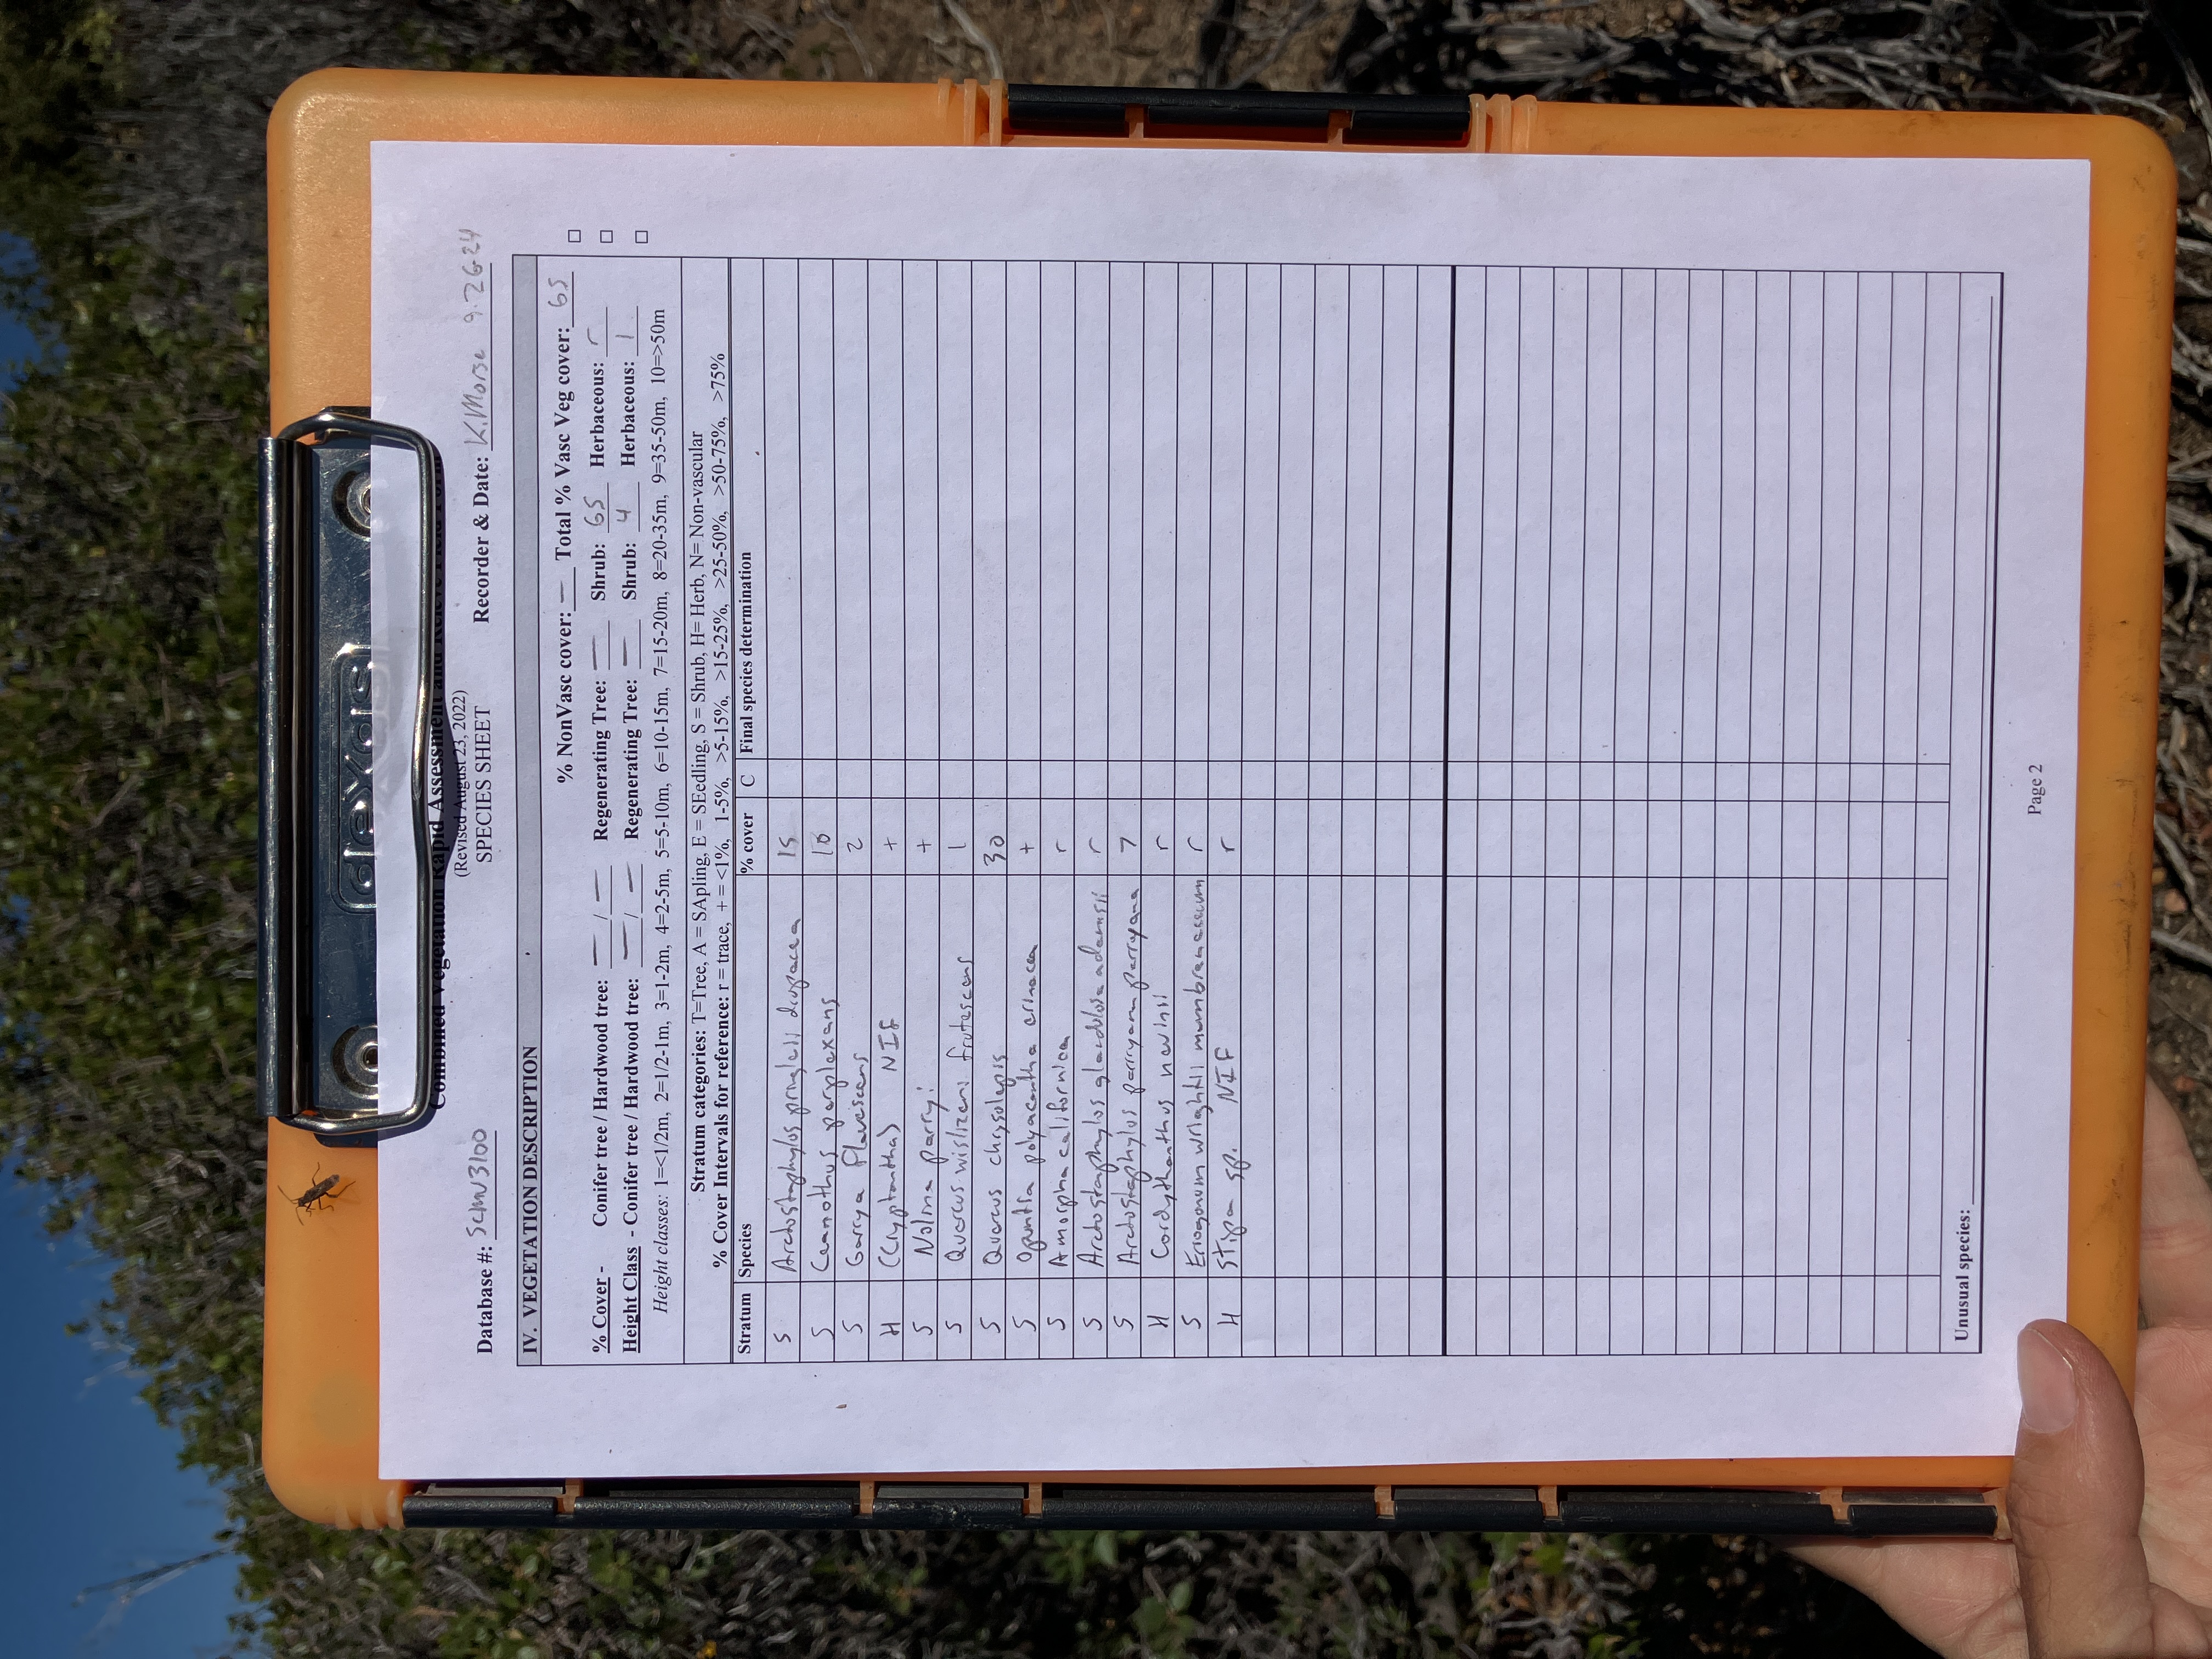 dexas
Combined Vegetation Rapid Assessment and Relevé Field Form
(Revised August 23, 2022)
SPECIES SHEET
Database #: SCMN3100 Recorder & Date: K.Morse 9.26.24
IV. VEGETATION DESCRIPTION
% NonVasc cover: — Total % Vasc Veg cover: 65 □
% Cover - Conifer tree / Hardwood tree: — / — Regenerating Tree: — Shrub: 65 Herbaceous: r □
Height Class - Conifer tree / Hardwood tree: — / — Regenerating Tree: — Shrub: 4 Herbaceous: 1 □
Height classes: 1=<1/2m, 2=1/2-1m, 3=1-2m, 4=2-5m, 5=5-10m, 6=10-15m, 7=15-20m, 8=20-35m, 9=35-50m, 10=>50m
Stratum categories: T=Tree, A = SApling, E = SEedling, S = Shrub, H= Herb, N= Non-vascular
% Cover Intervals for reference: r = trace, + = <1%, 1-5%, >5-15%, >15-25%, >25-50%, >50-75%, >75%
Stratum Species % cover C Final species determination
S Arctostaphylos pringlei drupacea 15
S Ceanothus perplexans 10
S Garrya flavescens 2
H (Cryptantha) NIF +
S Nolina parryi +
S Quercus wislizeni frutescens 1
S Quercus chrysolepis 30
S Opuntia polyacantha erinacea +
S Amorpha californica r
S Arctostaphylos glandulosa adamsii r
S Arctostaphylos parryana parryana 7
H Cordylhanthus nevinii r
S Eriogonum wrightii membranaceum r
H Stipa sp. NIF r
Unusual species:
Page 2